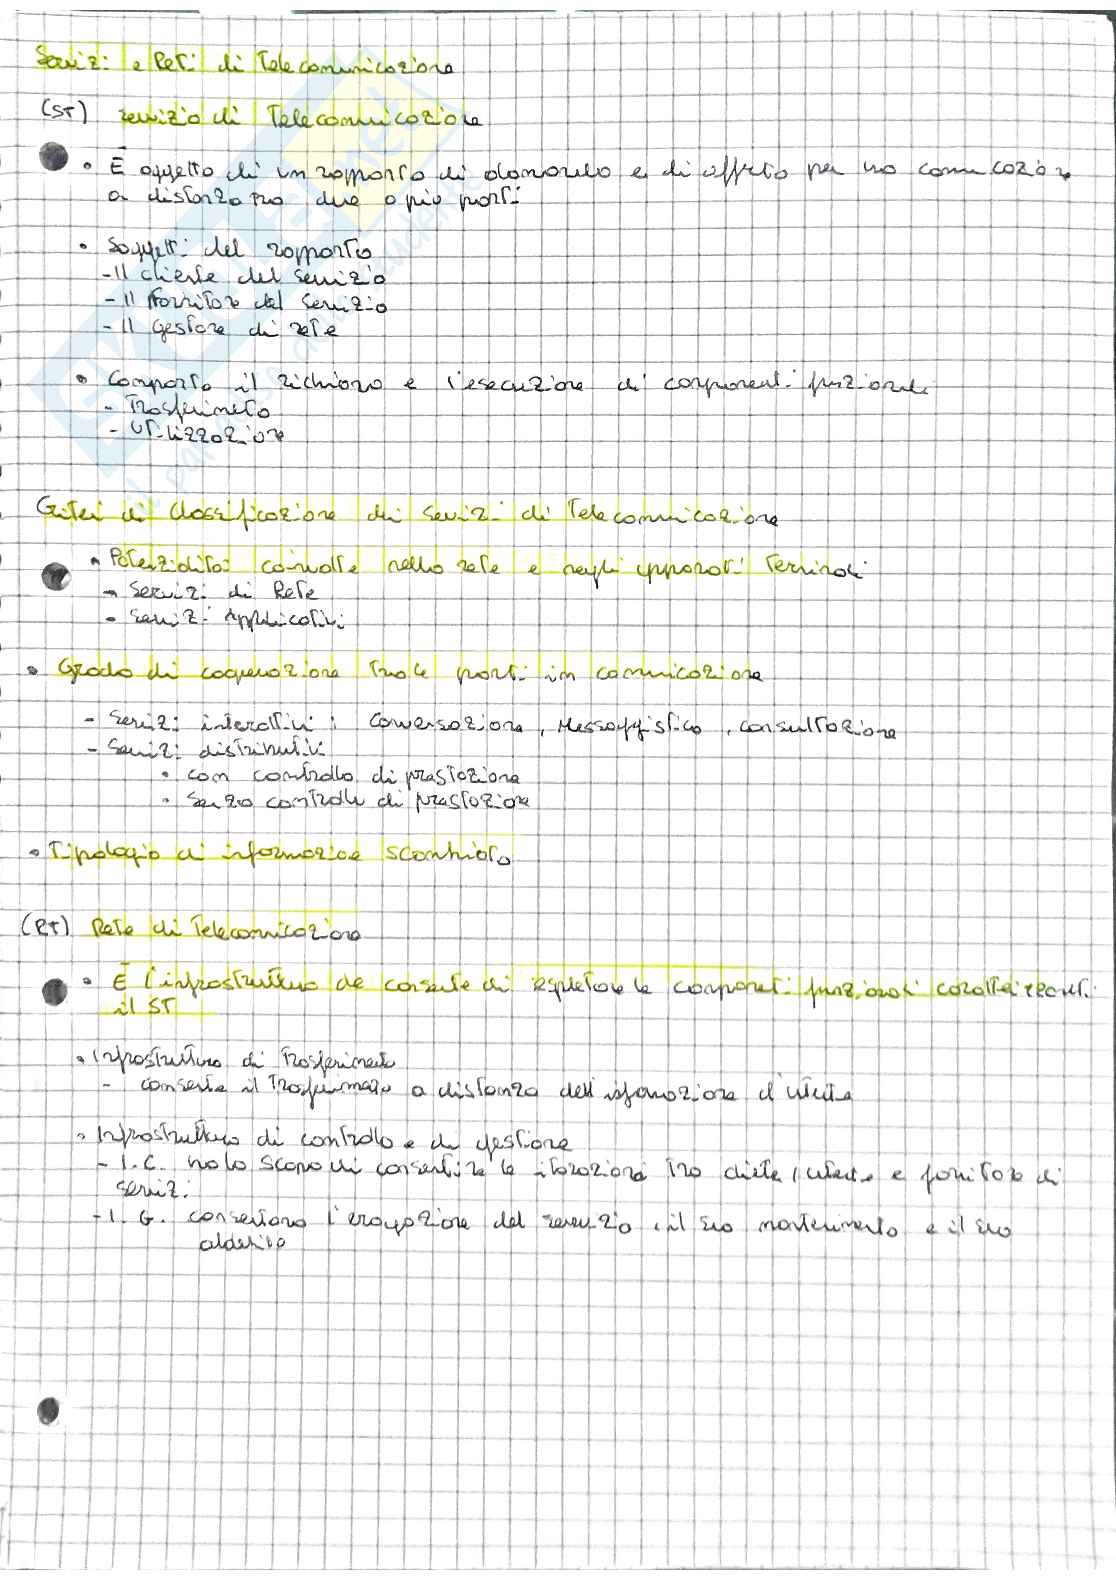 Servizi e Reti di Telecomunicazione
(ST) servizio di Telecomunicazione
• È oggetto di un rapporto di domanda e di offerta per una comunicazione
a distanza tra due o più parti
• Soggetti del rapporto
- Il cliente del servizio
- Il fornitore del servizio
- Il gestore di rete
• Comporta il richiamo e l'esecuzione di componenti funzionali
- Trasferimento
- Utilizzazione
Criteri di classificazione dei servizi di Telecomunicazione
• Potenzialità coinvolte nella rete e negli apparati Terminali
- Servizi di Rete
- Servizi Applicativi
• Grado di cooperazione tra le parti in comunicazione
- Servizi interattivi: Conversazione, Messaggistica, consultazione
- Servizi distributivi
• con controllo di prestazione
• senza controllo di prestazione
• Tipologia di informazione scambiata
(RT) Rete di Telecomunicazione
• È l'infrastruttura che consente di espletare le componenti funzionali caratterizzanti
il ST
• Infrastruttura di Trasferimento
- consente il Trasferimento a distanza dell'informazione d'utente
• Infrastruttura di controllo e di gestione
- I.C. ha lo scopo di consentire le interazioni tra cliente/utente e fornitore di
servizi
- I.G. consentono l'erogazione del servizio, il suo mantenimento e il suo